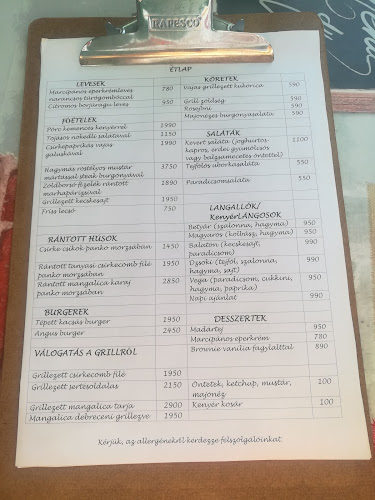 RAPESCO
ÉTLAP
LEVESEK
Marcipános eperkrémleves 780
narancsos túrógombóccal
Citromos borjúragu leves 950
FŐÉTELEK
Pörc kemencés kenyérrel 1990
Tojásos nokedli salátával 1150
Csirkepaprikás vajas 1990
galuskával
Nagymás rostélyos mustár 3750
mártással steak burgonyával
Zöldborsó főzelék rántott 1890
marhapárizsival
Grillezett kecskesajt 1950
Friss lecsó 750
RÁNTOTT HÚSOK
Csirke csíkok panko morzsában 1450
Rántott tanyasi csirkecomb filé 1950
panko morzsában
Rántott mangalica karaj 2850
panko morzsában
BURGEREK
Tépett kacsás burger 1950
Angus burger 2450
VÁLOGATÁS A GRILLRŐL
Grillezett csirkecomb filé 1950
Grillezett sertésoldalas 2150
Grillezett mangalica tarja 2900
Mangalica debreceni grillezve 1950
KÖRETEK
Vajas grillezett kukorica 550
Grill zöldség 590
Rosejbni 590
Majonézes burgonyasaláta 590
SALÁTÁK
Kevert saláta (joghurtos 1100
kapros, erdei gyümölcsös
vagy balzsamecetes öntettel)
Tejfölös uborkasaláta 550
Paradicsomsaláta 550
LANGALLÓK/
KenyérLÁNGOSOK
Betyár (szalonna, hagyma) 950
Magyaros (kolbász, hagyma) 950
Balaton (kecskesajt, 990
paradicsom)
Dzsoki (tejföl, szalonna, 990
hagyma, sajt)
Vega (paradicsom, cukkini, 950
hagyma, paprika)
Napi ajánlat 990
DESSZERTEK
Madártej 950
Marcipános eperkrém 780
Brownie vanília fagylalttal 890
Öntetek, ketchup, mustár, 100
majonéz
Kenyér kosár 100
Kérjük, az allergénekről kérdezze felszolgálóinkat.